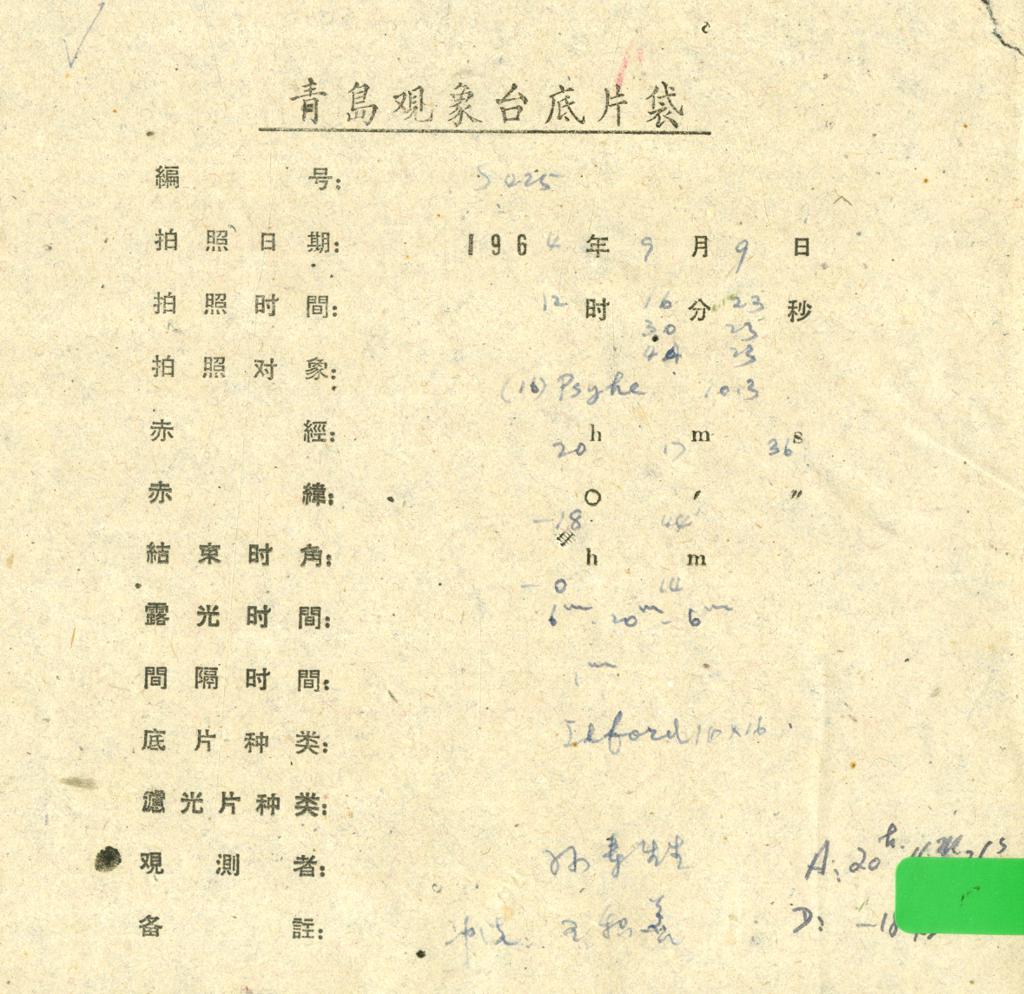 青島观象台底片袋
編号: S 025
拍照日期: 1964年9月9日
拍照时間: 12时16分23秒
30 23
44 23
拍照对象: (16) Psyhe 1013
赤經: 20h 17m 36s
赤緯: -18° 44′ ″
結束时角: -0h 14m
露光时間: 6m - 20m - 6m
間隔时間: 1m
底片种类: Ilford
濾光片种类:
观測者: 孙寿
A: 20h
备註: 冲洗: 王
D: -18